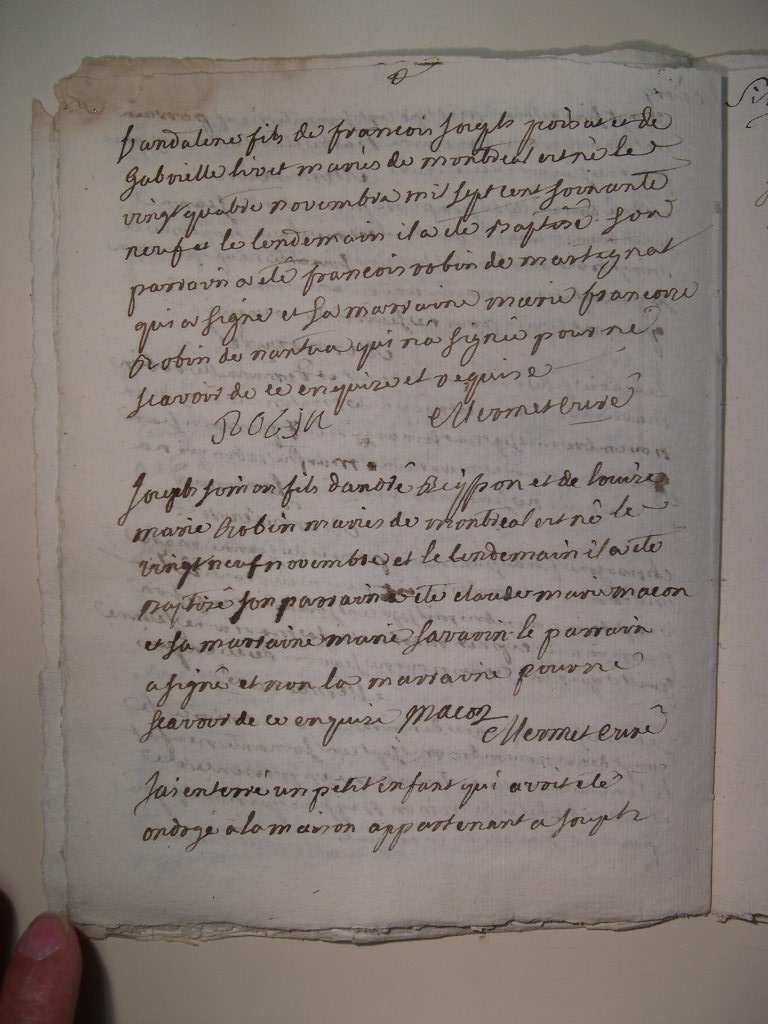 fils de francois Joseph poisat et de
Gabrielle livet mariés de montreal est né le
vingt quatre novembre mil sept cent soixante
neuf et le lendemain il a eté baptisé son
parrain a eté francois robin de martignat
qui a signé et sa marraine marie francoise
Robin de nantua qui n'a signée pour ne
scavoir de ce enquise et requise
Robin Mermet curé
Joseph simon fils dandré Reÿpon et de louise
marie Robin mariés de montreal est né le
vingt neuf novembre et le lendemain il a eté
baptisé son parrain a eté claude marie macon
et sa marraine marie savarin le parrain
a signé et non la marraine pour ne
scavoir de ce enquise macon
Mermet curé
Jai enterré un petit enfant qui avoit eté
ondoyé a la maison appartenant a Joseph